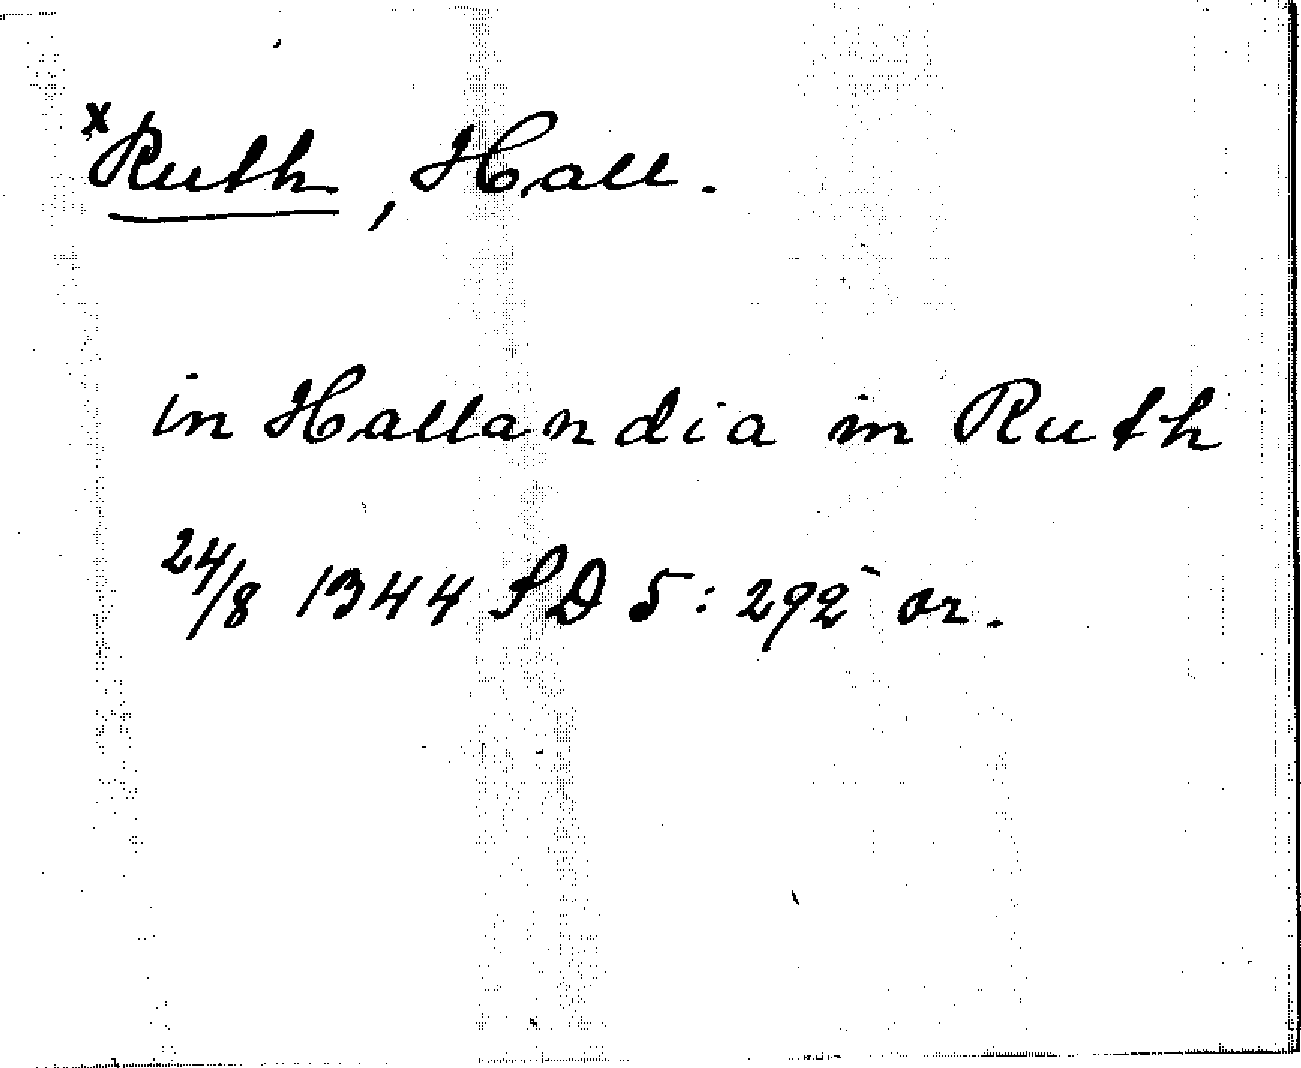 x Ruth, Hall.
in Hallandia in Ruth
24/8 1344 SD 5: 292 or.